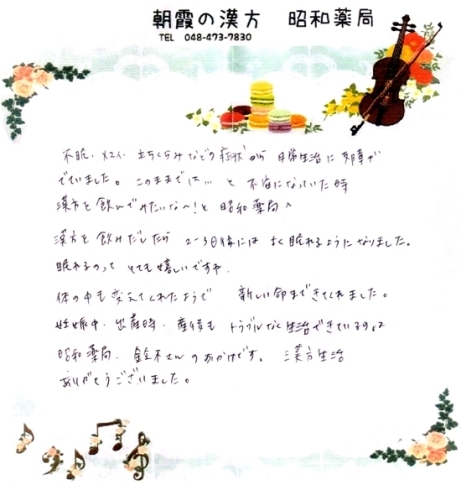 朝霞の漢方　昭和薬局
TEL 048-473-7830
不眠、メマイ、立ちくらみなどの症状から 日常生活に支障が
でていました。このままでは… と 不安になっていた時
漢方を飲んでみたいな〜！と 昭和薬局へ
漢方を飲みだしたら 2〜3日後には よく眠れるようになりました。
眠れるのって とても嬉しいですね。
体の中も変えてくれたようで 新しい命まできてくれました。
妊娠中、出産時、産後も トラブルなく生活できているのは
昭和薬局、鈴木さんのおかげです。 漢方生活
ありがとうございました。